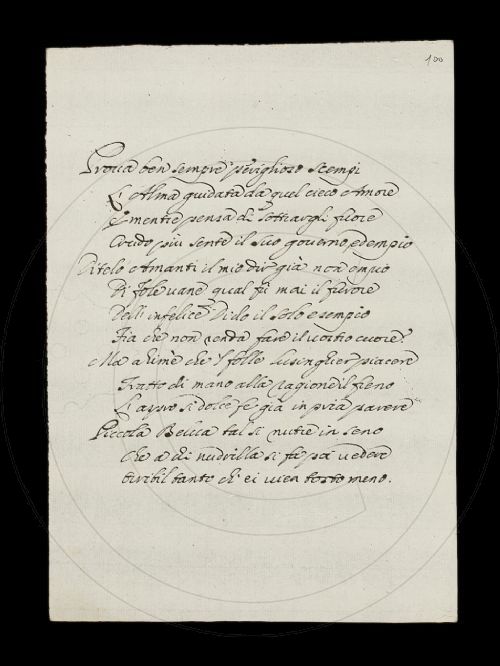 100
Prova ben sempre perigliosi scempi
L'Alma guidata da quel cieco Amore
E mentre pensa di sottrargli fuore
Crudo più sente il suo governo, ed empio
Ditelo Amanti il mio dir già non empio
Di fole vane qual fù mai il furore
Dell' infelice Dido il solo esempio
Fia che non renda fare il vostro cuore?
Ma ahimè che 'l folle lusinghier piacere
Tratto di mano alla ragione il freno
L'aspro sì dolce fè già in pria parere
Piccola Belva tal si nutre in seno
Che a di nudrilla si fa poi vedere
Orribil tanto ch' ei vien meno.